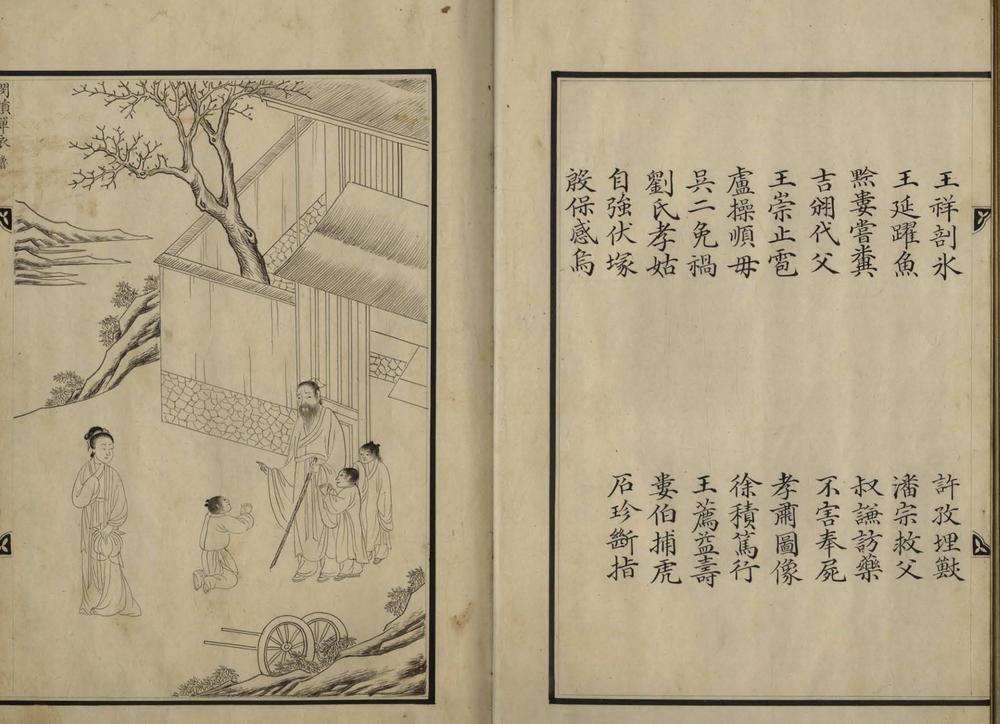 王祥剖氷
許孜埋獸
王延躍魚
潘宗救父
黔婁嘗糞
叔謙訪藥
吉翂代父
不害奉屍
王崇止雹
孝肅圖像
盧操順母
徐積篤行
吳二免禍
王薦益壽
劉氏孝姑
婁伯捕虎
自強伏塚
石珍斷指
殷保感烏
閔損單衣 魯